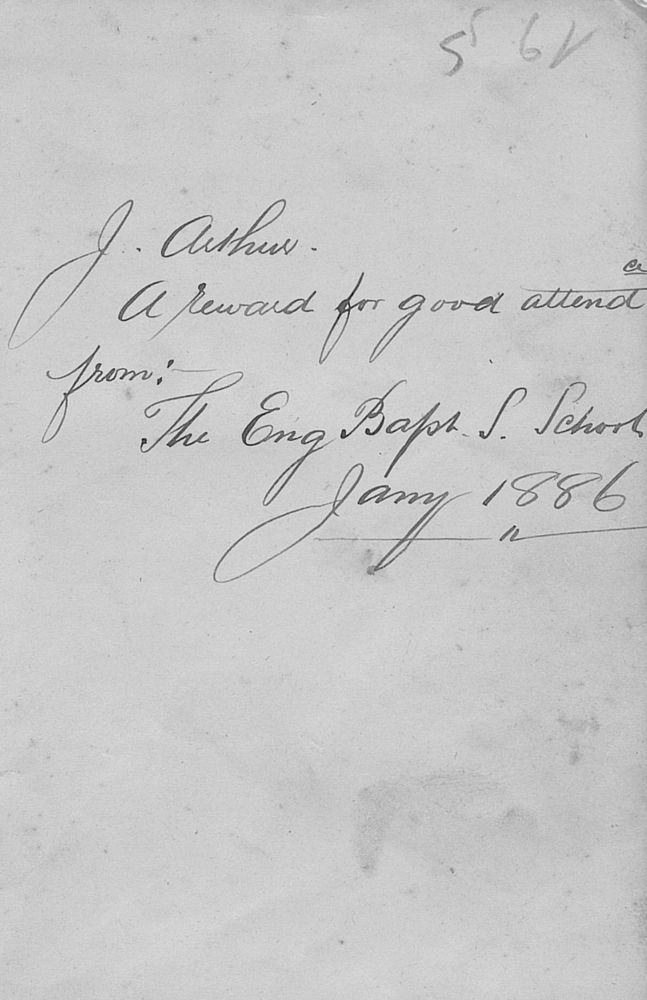 J. Arthur.
A reward for good attend ce
from:-
The Eng Bapt. S. School
Jany 1886